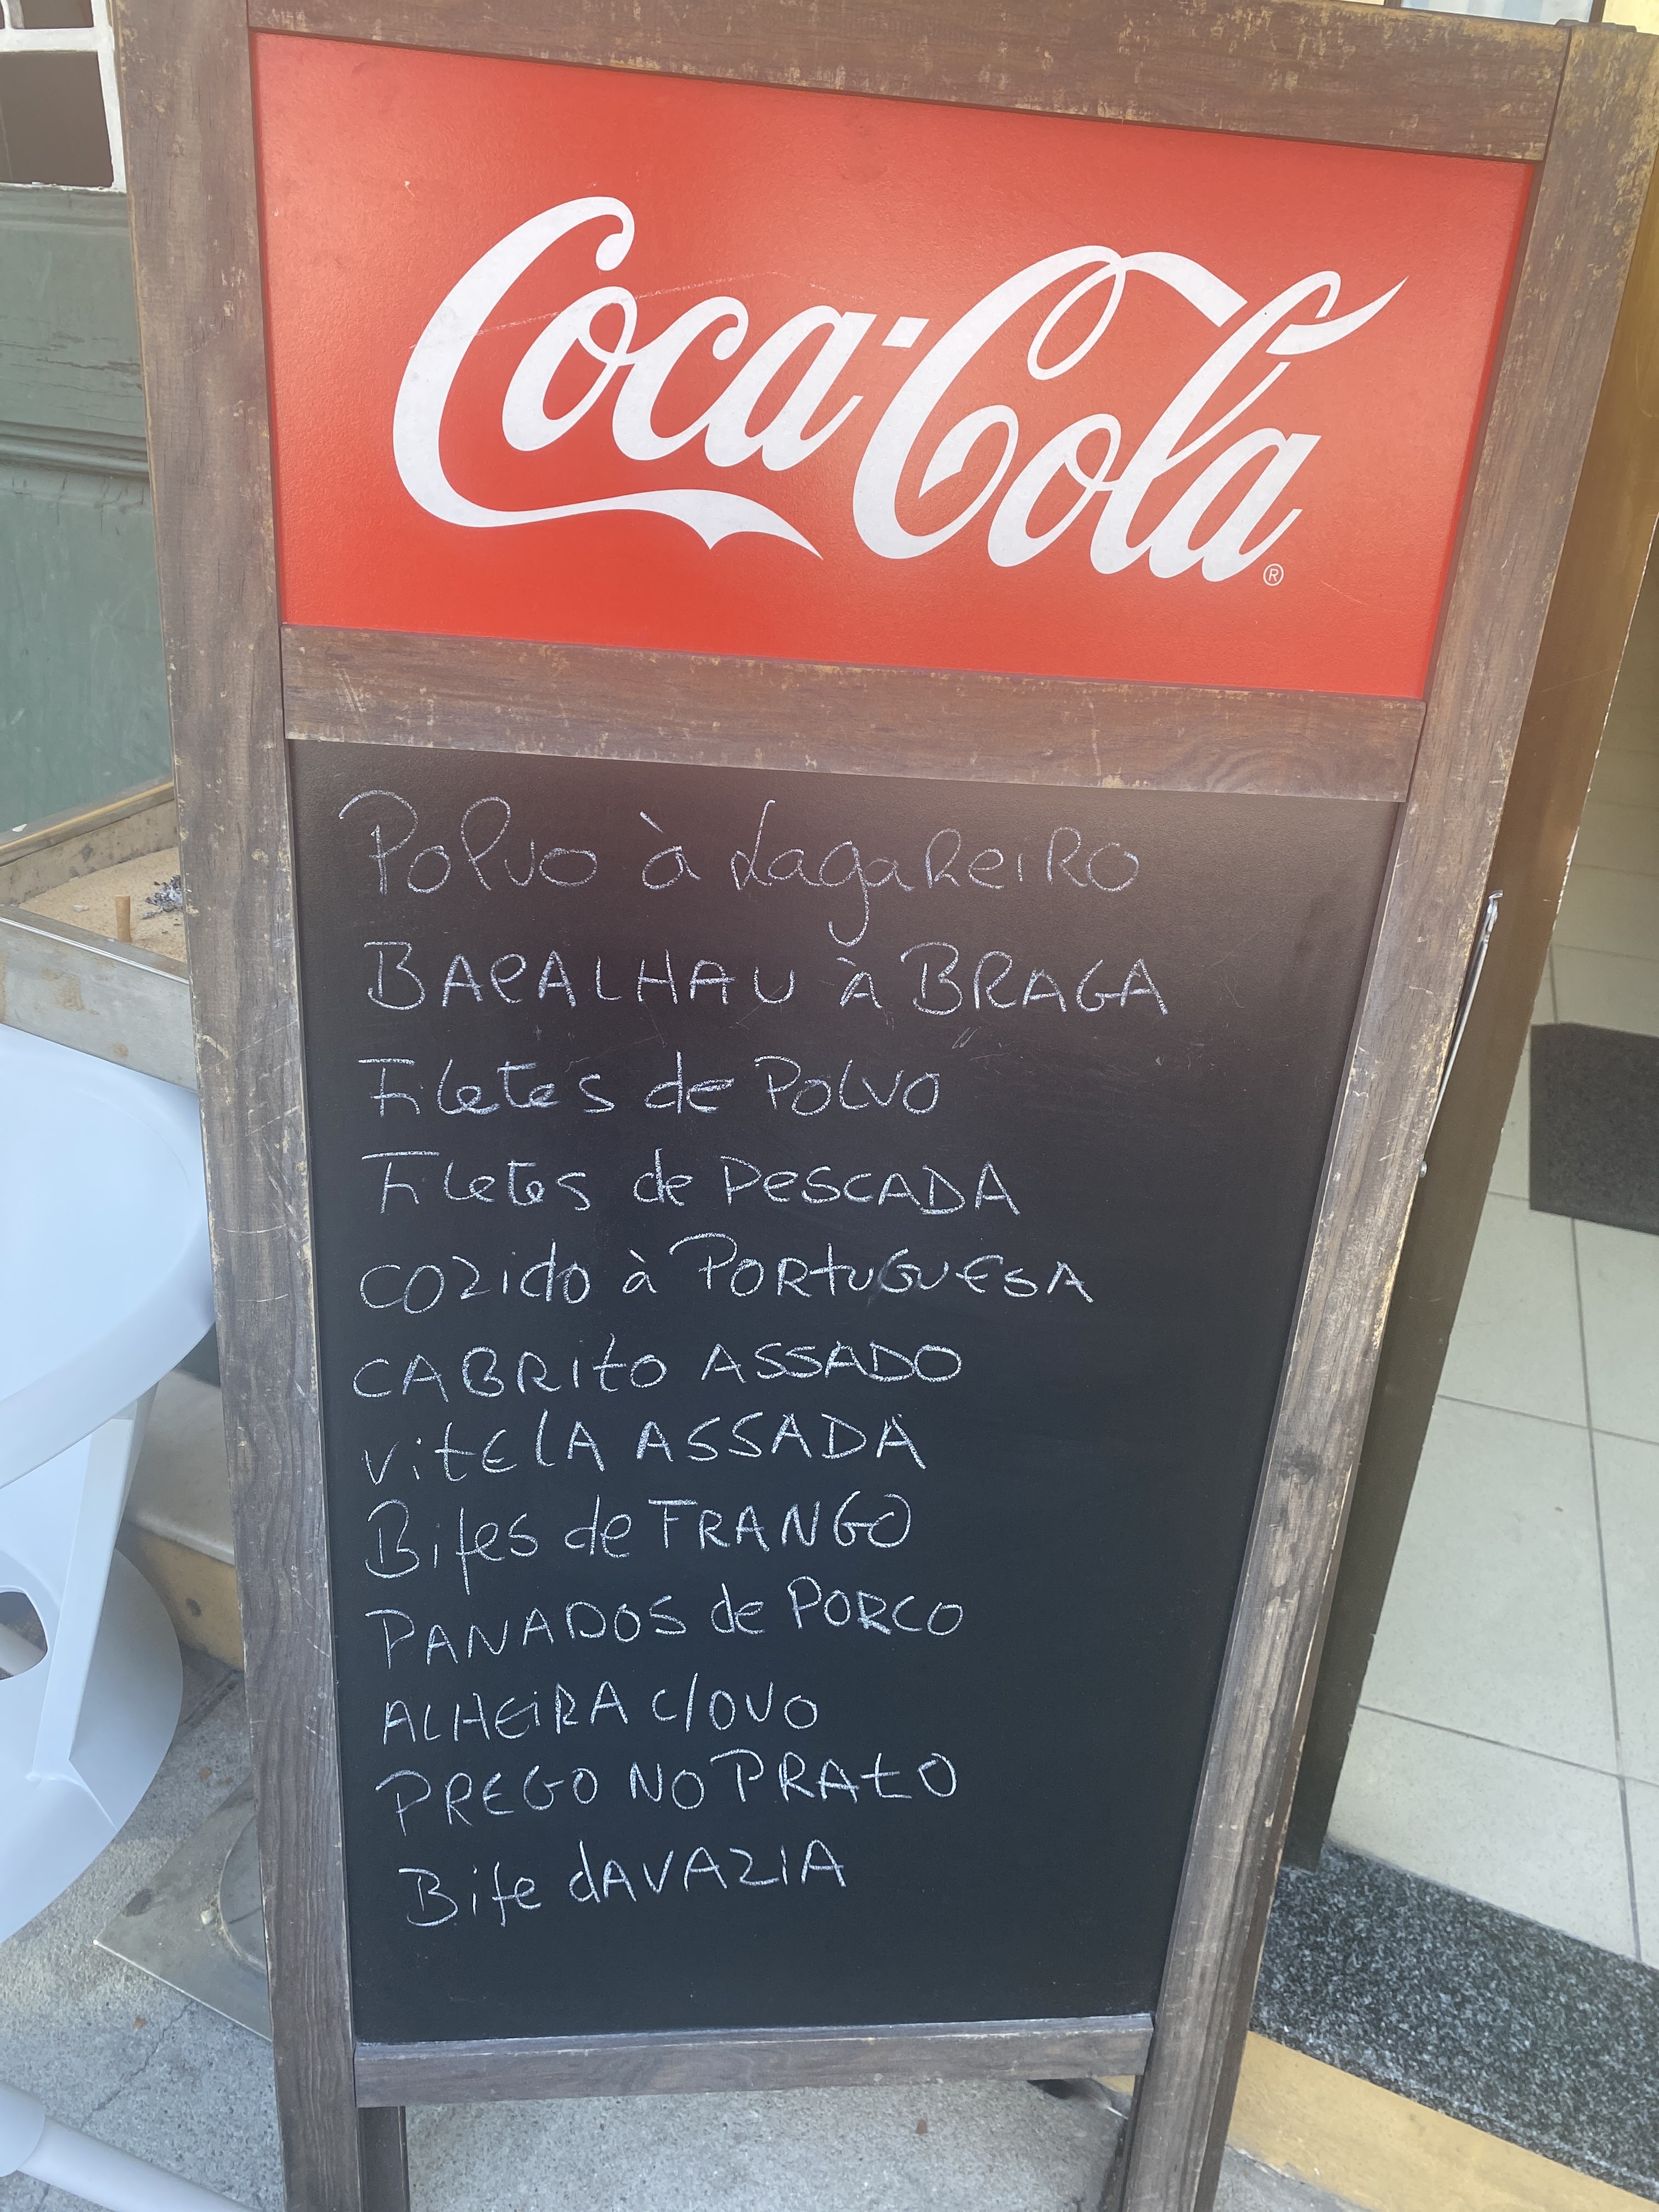 Coca-Cola
®
Polvo à LagaReiRo
BACALHAU à BRAGA
Filetes de Polvo
Filetes de PESCADA
COZido à PORtuGUESA
CABRito ASSADO
VitelA ASSADA
Bifes de TRANGO
PANADOS de PORCO
ALHEiRA c/OVO
PREGO NO PRAtO
Bife dAVAZIA